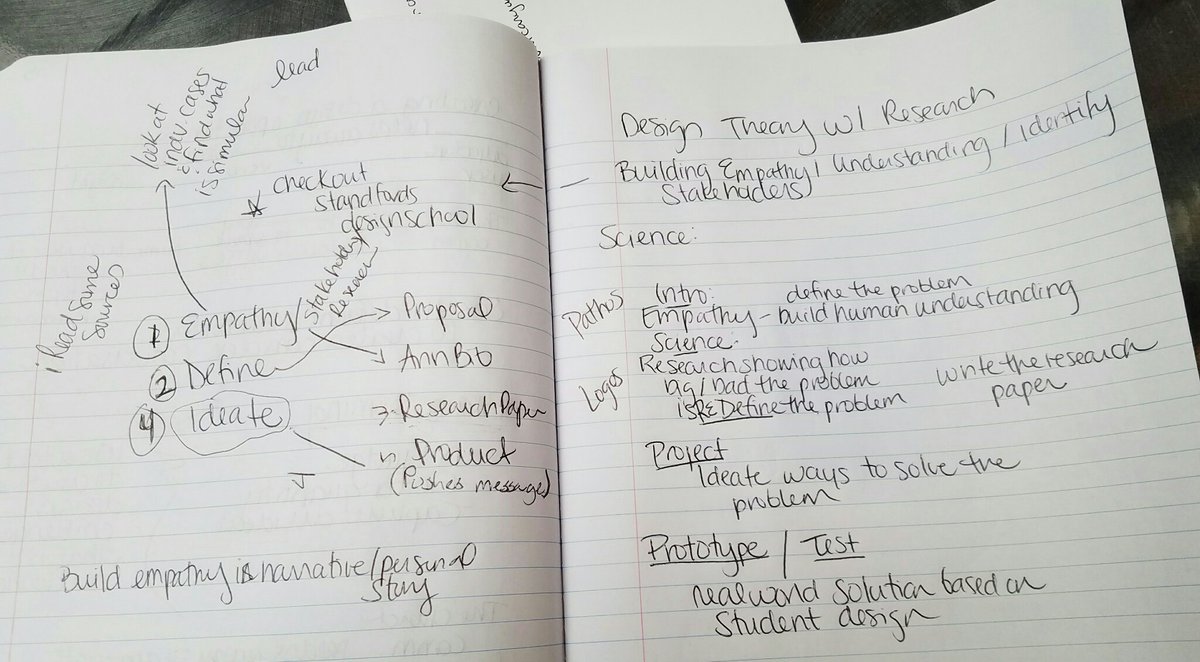 lead
look at
indv. cases
& find what
is simular
* checkout
standfords
designschool
i Read some
sources
① Empathy/
Stakeholder
Research
② Define
④ Ideate
Proposal
Ann Bib
Research Paper
Product
(Pushes messages)
Build empathy is narrative/personal
story
Design Theory w/ Research
Building Empathy/ Understanding / Identify
Stakeholders
Science:
Pathos
Intro: define the problem
Empathy - build human understanding
Science:
Logos
Research showing how
big/bad the problem
is RE Define the problem
write the research
paper
Project
Ideate ways to solve the
problem
Prototype / Test
real world solution based on
student design